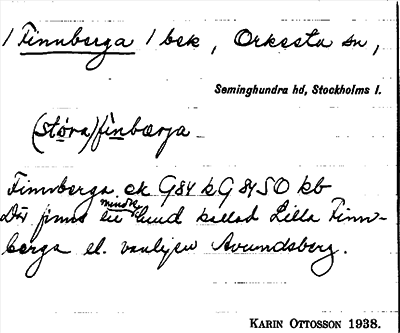 1 Finnberga 1 bek, Orkesta sn,
Seminghundra hd, Stockholms l.
(stora) finbærja
Finnberga ek G84 kG84SO kb
Där finns en mindre lund kallad Lilla Finn-
berga el. vanligen Avundsberg.
KARIN OTTOSSON 1938.